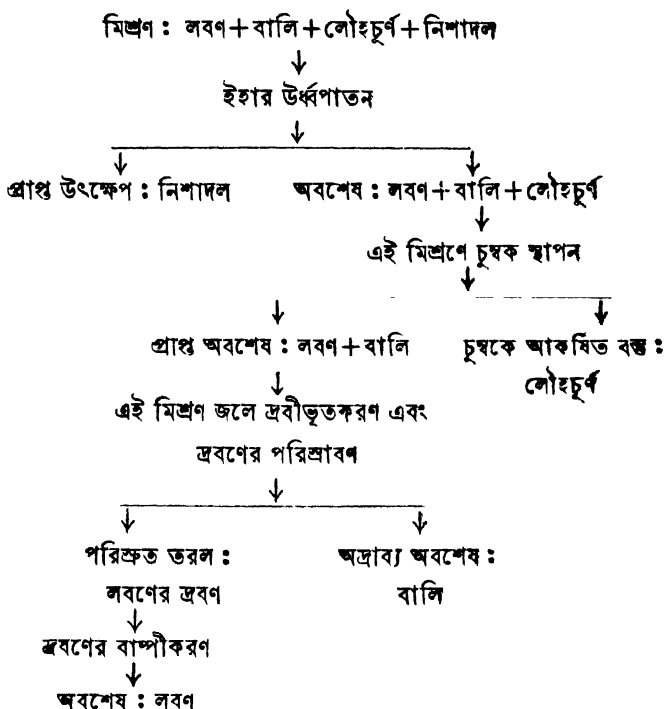 মিশ্রণ : লবণ+বালি+লৌহচূর্ণ+নিশাদল
ইহার উর্ধ্বপাতন
প্রাপ্ত উৎক্ষেপ : নিশাদল অবশেষ : লবণ+বালি+লৌহচূর্ণ
এই মিশ্রণে চুম্বক স্থাপন
প্রাপ্ত অবশেষ : লবণ+বালি চুম্বকে আকর্ষিত বস্তু :
লৌহচূর্ণ
এই মিশ্রণ জলে দ্রবীভূতকরণ এবং
দ্রবণের পরিস্রাবণ
পরিস্রুত তরল : অদ্রাব্য অবশেষ :
লবণের দ্রবণ বালি
দ্রবণের বাষ্পীকরণ
অবশেষ : লবণ